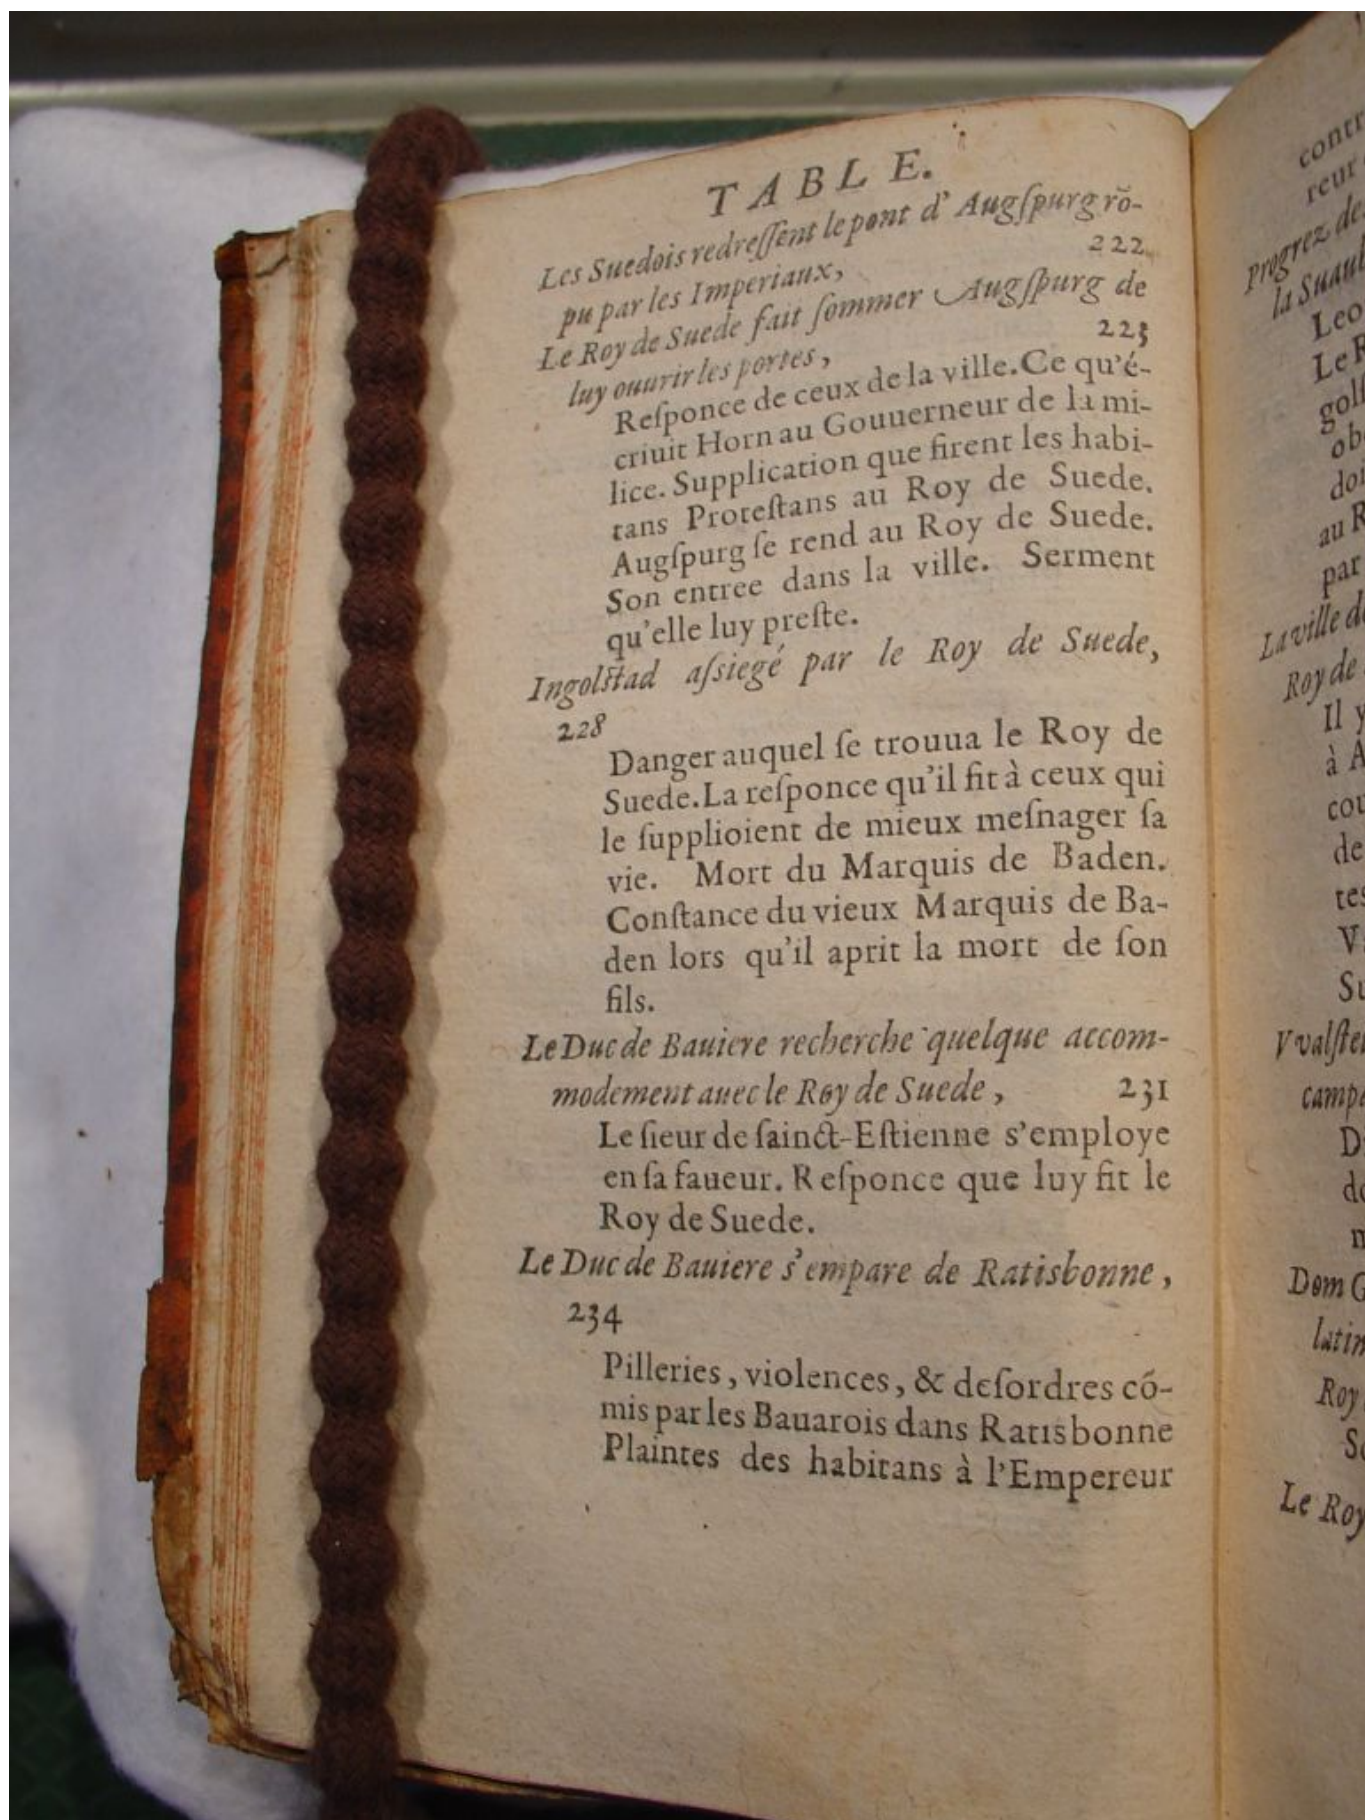 TABLE.
Les Suedois redreſſent le pont d' Augſpurg rō-
pu par les Imperiaux, 222
Le Roy de Suede fait ſommer Augſpurg de
luy ouurir les portes, 223
Reſponce de ceux de la ville. Ce qu'é-
criuit Horn au Gouuerneur de la mi-
lice. Supplication que firent les habi-
tans Proteſtans au Roy de Suede.
Augſpurg ſe rend au Roy de Suede.
Son entree dans la ville. Serment
qu'elle luy preſte.
Ingolſtad aſsiegé par le Roy de Suede,
228
Danger auquel ſe trouua le Roy de
Suede. La reſponce qu'il fit à ceux qui
le ſupplioient de mieux meſnager ſa
vie. Mort du Marquis de Baden.
Conſtance du vieux Marquis de Ba-
den lors qu'il aprit la mort de ſon
fils.
Le Duc de Bauiere recherche quelque accom-
modement auec le Roy de Suede, 231
Le ſieur de ſainct-Eſtienne s'employe
en ſa faueur. Reſponce que luy fit le
Roy de Suede.
Le Duc de Bauiere s'empare de Ratisbonne,
234
Pilleries, violences, & deſordres cō-
mis par les Bauarois dans Ratisbonne
Plaintes des habitans à l'Empereur
contr
reur
progrez de
la Suaub
Leo
Le R
golſ
obe
doi
au R
par
La ville de
Roy de
Il y
à A
cou
de
tes
V
Su
Vvalſte
campe
D
do
Dom G
latin
Roy
Se
Le Roy